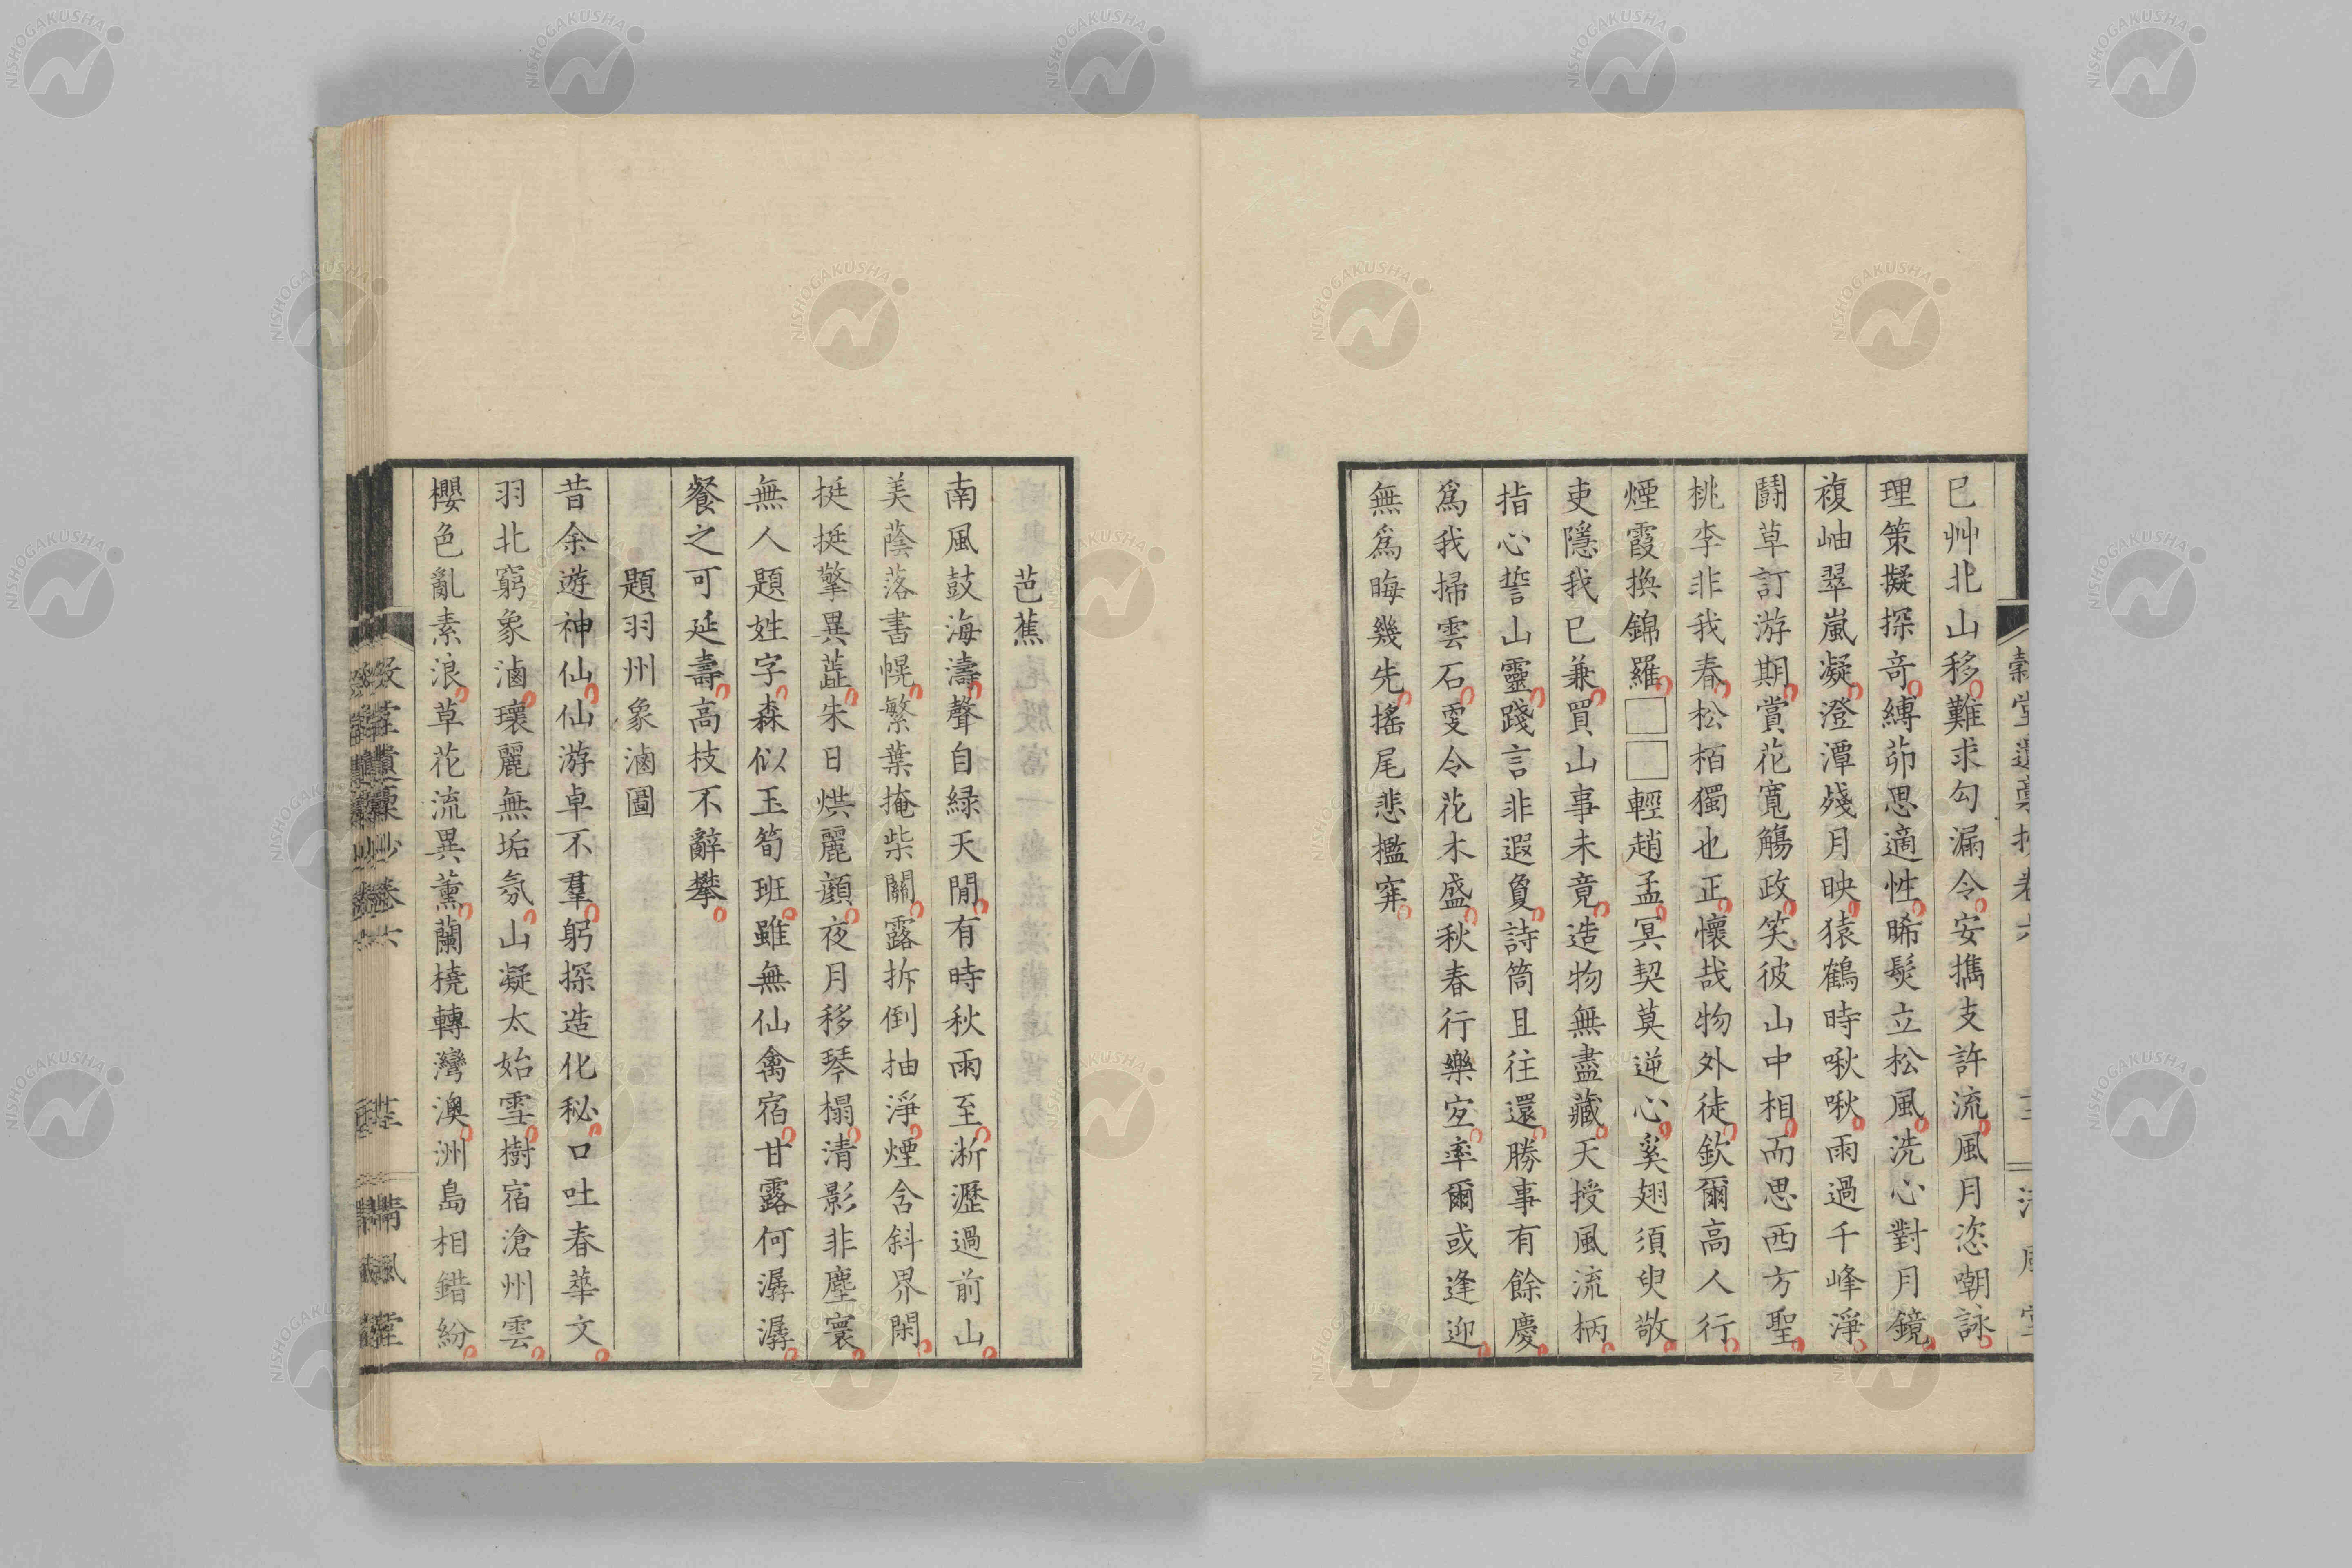 已艸北山移難求勾漏令安攜支許流風月恣嘲詠
理策擬探奇縛茆思適性晞髮立松風洗心對月鏡
複岫翠嵐凝澄潭殘月映猿鶴時啾啾雨過千峰淨
鬪草訂游期賞花寬觴政笑彼山中相而思西方聖
桃李非我春松栢獨也正懷哉物外徒欽爾高人行
煙霞換錦羅□□輕趙孟冥契莫逆心奚翅須臾敬
吏隱我已兼買山事未竟造物無盡藏天授風流柄
指心誓山靈踐言非遐敻詩筒且往還勝事有餘慶
爲我掃雲石雯令花木盛秋春行樂宐率爾或逢迎
無爲晦幾先搖尾悲檻穽
芭蕉
南風鼓海濤聲自綠天閒有時秋雨至淅瀝過前山
美蔭落書幌繁葉掩柴關露拆倒抽淨煙含斜界閑
挺挺擎異蕋朱日烘麗顔夜月移琴榻清影非塵寰
無人題姓字森似玉筍班雖無仙禽宿甘露何潺潺
餐之可延壽高枝不辭攀
題羽州象滷圖
昔余遊神仙仙游卓不羣躬探造化秘口吐春華文
羽北窮象滷瓌麗無垢氛山凝太始雪樹宿滄州雲
櫻色亂素浪草花流異薰蘭橈轉灣澳洲島相錯紛
清風堂
NISHOGAKUSHA